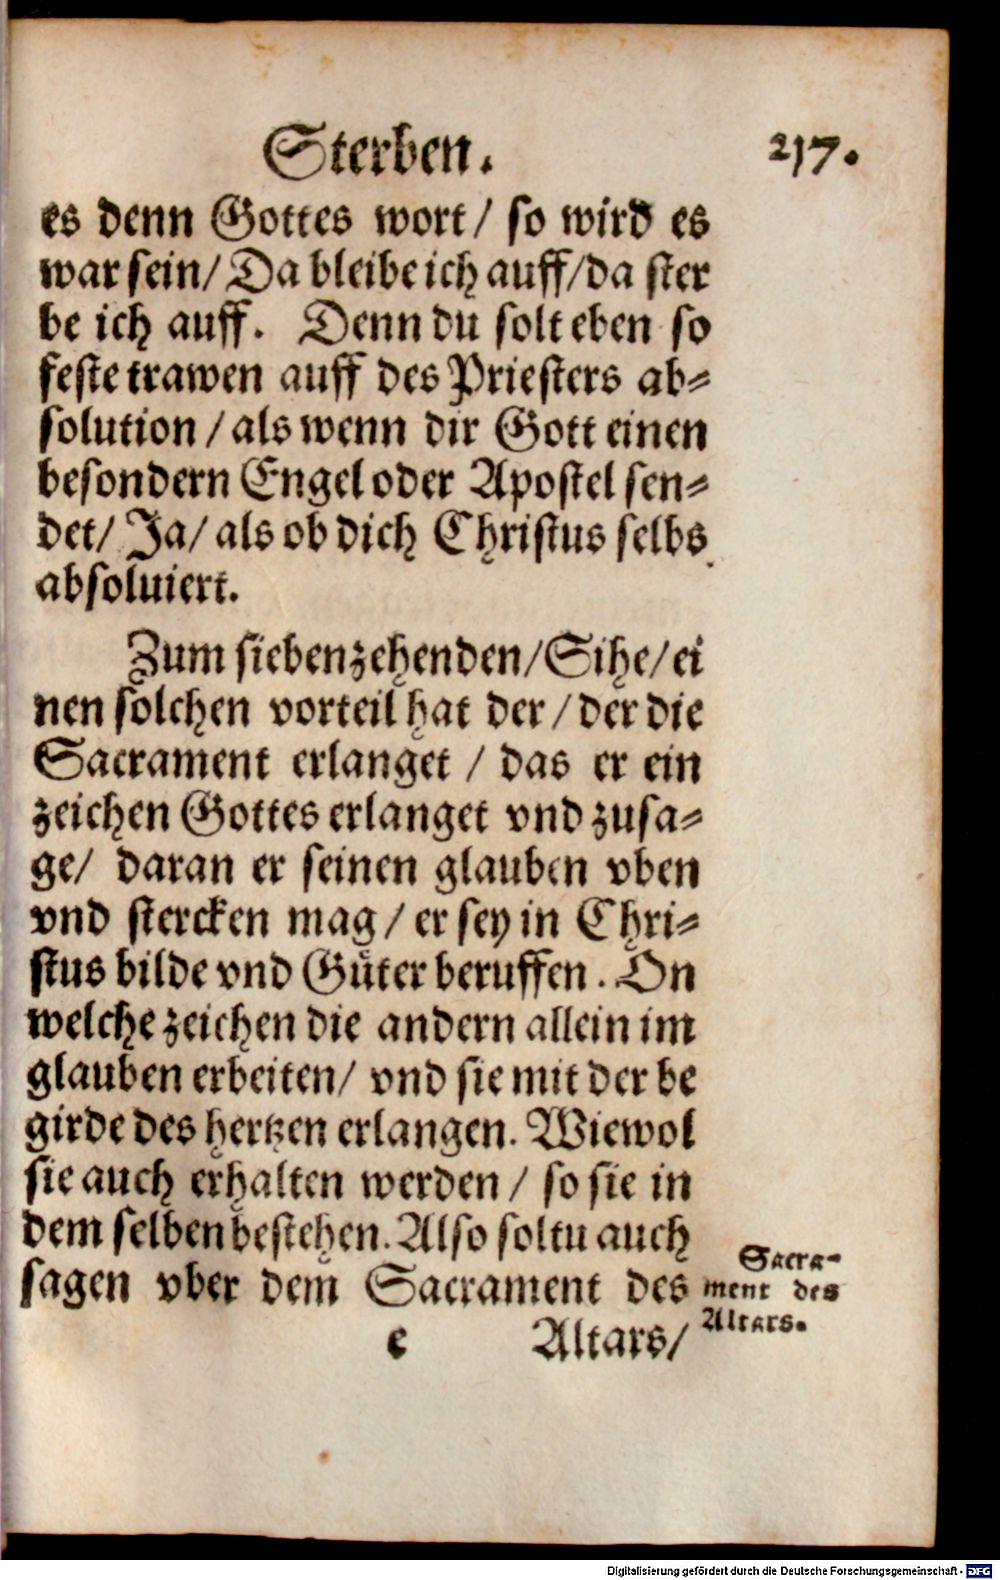 Sterben. 217.
es denn Gottes wort/ so wird es
war sein/ Da bleibe ich auff/ da ster
be ich auff. Denn du solt eben so
feste trawen auff des Priesters ab⸗
solution / als wenn dir Gott einen
besondern Engel oder Apostel sen⸗
det/ Ja/ als ob dich Christus selbs
absoluiert.
Zum siebenzehenden/ Sihe/ ei
nen solchen vorteil hat der / der die
Sacrament erlanget / das er ein
zeichen Gottes erlanget vnd zusa⸗
ge/ daran er seinen glauben vben
vnd stercken mag / er sey in Chri⸗
stus bilde vnd Güter beruffen. On
welche zeichen die andern allein im
glauben erbeiten/ vnd sie mit der be
girde des hertzen erlangen. Wiewol
sie auch erhalten werden / so sie in
dem selben bestehen. Also soltu auch
sagen vber dem Sacrament des
Sacra⸗
ment des
Altars.
e Altars/
Digitalisierung gefördert durch die Deutsche Forschungsgemeinschaft - DFG